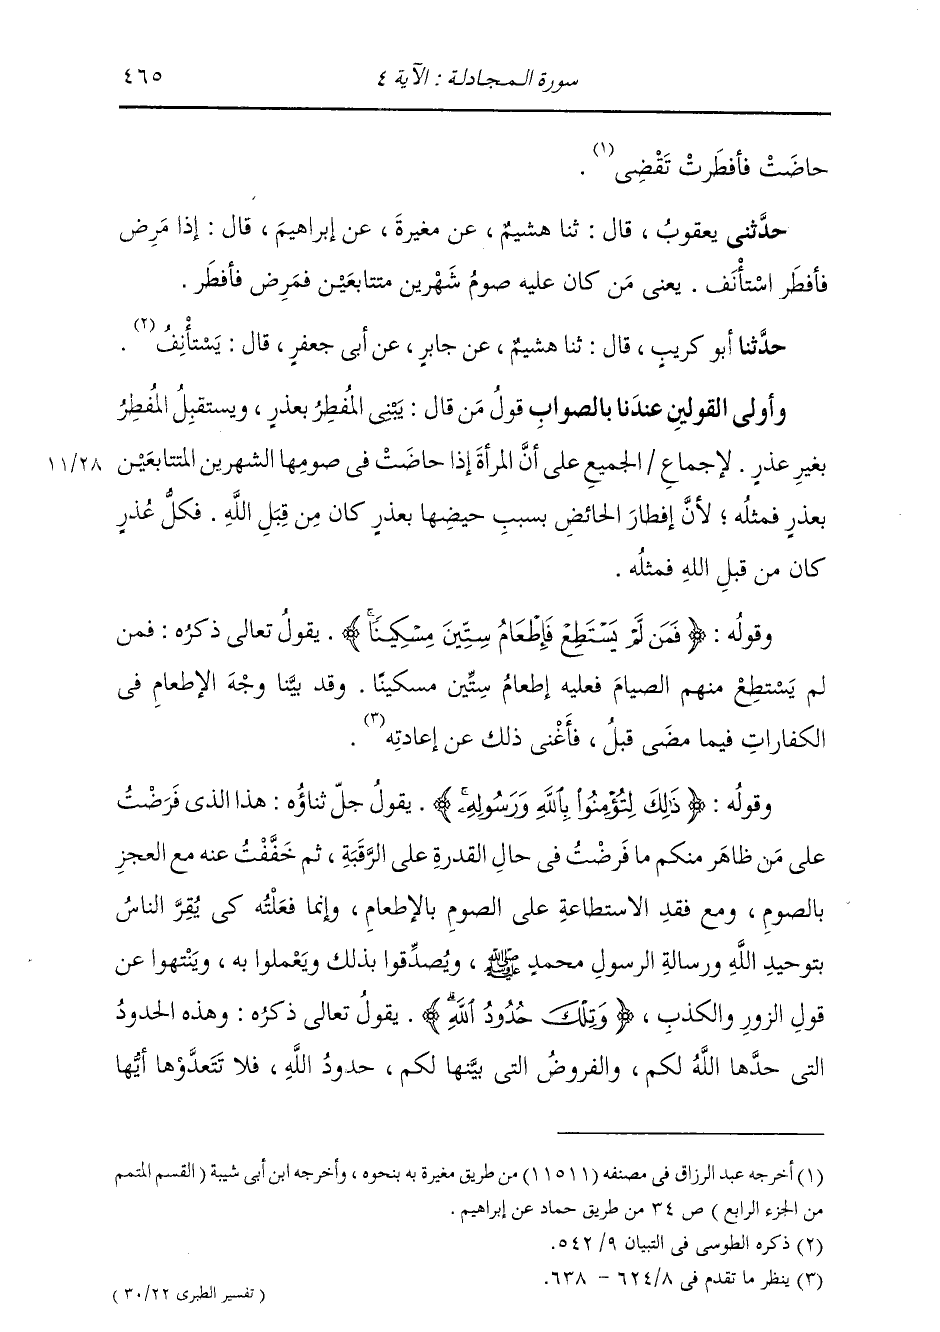 سورة المجادلة : الآية ٤ ٤٦٥
حاضَتْ فأفطَرتْ تَقْضِى(١) .
حدَّثنى يعقوبُ ، قال : ثنا هشيمٌ ، عن مغيرةَ ، عن إبراهيمَ ، قال : إذا مَرِض
فأفطَر اسْتأْنَف . يعنى مَن كان عليه صومُ شَهْرين متتابعَيْن فمَرِض فأفطَر .
حدَّثنا أبو كريبٍ ، قال : ثنا هشيمٌ ، عن جابرٍ ، عن أبى جعفرٍ ، قال : يَسْتأْنِفُ(٢) .
وأولى القولين عندَنا بالصوابِ قولُ مَن قال : يَبْنِى المُفطِرُ بعذرٍ ، ويستقبِلُ المُفطِرُ
بغيرِ عذرٍ . لإجماعِ / الجميعِ على أنَّ المرأةَ إذا حاضَتْ فى صومِها الشهرين المتتابعَيْن ١١/٢٨
بعذرٍ فمثلُه ؛ لأنَّ إفطارَ الحائضِ بسببِ حيضِها بعذرٍ كان مِن قِبَلِ اللَّهِ . فكلُّ عُذرٍ
كان من قبلِ اللهِ فمثلُه .
وقولُه : ﴿ فَمَن لَّمْ يَسْتَطِعْ فَإِطْعَامُ سِتِّينَ مِسْكِينًاۚ ﴾ . يقولُ تعالى ذكرُه : فمن
لم يَسْتطِعْ منهم الصيامَ فعليه إطعامُ ستِّين مسكينًا . وقد بيَّنا وجْهَ الإطعامِ فى
الكفاراتِ فيما مضَى قبلُ ، فأَغْنى ذلك عن إعادتِه(٣) .
وقولُه : ﴿ ذَٰلِكَ لِتُؤْمِنُوا۟ بِٱللَّهِ وَرَسُولِهِۦۚ ﴾ . يقولُ جلّ ثناؤُه : هذا الذى فَرَضْتُ
على مَن ظاهَر منكم ما فَرضْتُ فى حالِ القدرةِ على الرَّقَبَةِ ، ثم خَفَّفْتُ عنه مع العجزِ
بالصومِ ، ومع فقدِ الاستطاعةِ على الصومِ بالإطعامِ ، وإنما فعَلْتُه كى يُقِرَّ الناسُ
بتوحيدِ اللَّهِ ورسالةِ الرسولِ محمدٍ ﷺ ، ويُصدِّقوا بذلك ويَعْملوا به ، ويَنْتهوا عن
قولِ الزورِ والكذبِ ، ﴿ وَتِلْكَ حُدُودُ ٱللَّهِۗ ﴾ . يقولُ تعالى ذكرُه : وهذه الحدودُ
التى حدَّها اللَّهُ لكم ، والفروضُ التى بيَّنها لكم ، حدودُ اللَّهِ ، فلا تَتَعدَّوْها أيُّها
(١) أخرجه عبد الرزاق فى مصنفه (١١٥١١) من طريق مغيرة به بنحوه ، وأخرجه ابن أبى شيبة ( القسم المتمم
من الجزء الرابع ) ص ٣٤ من طريق حماد عن إبراهيم .
(٢) ذكره الطوسى فى التبيان ٩/ ٥٤٢.
(٣) ينظر ما تقدم فى ٦٢٤/٨ - ٦٣٨.
( تفسير الطبرى ٣٠/٢٢ )